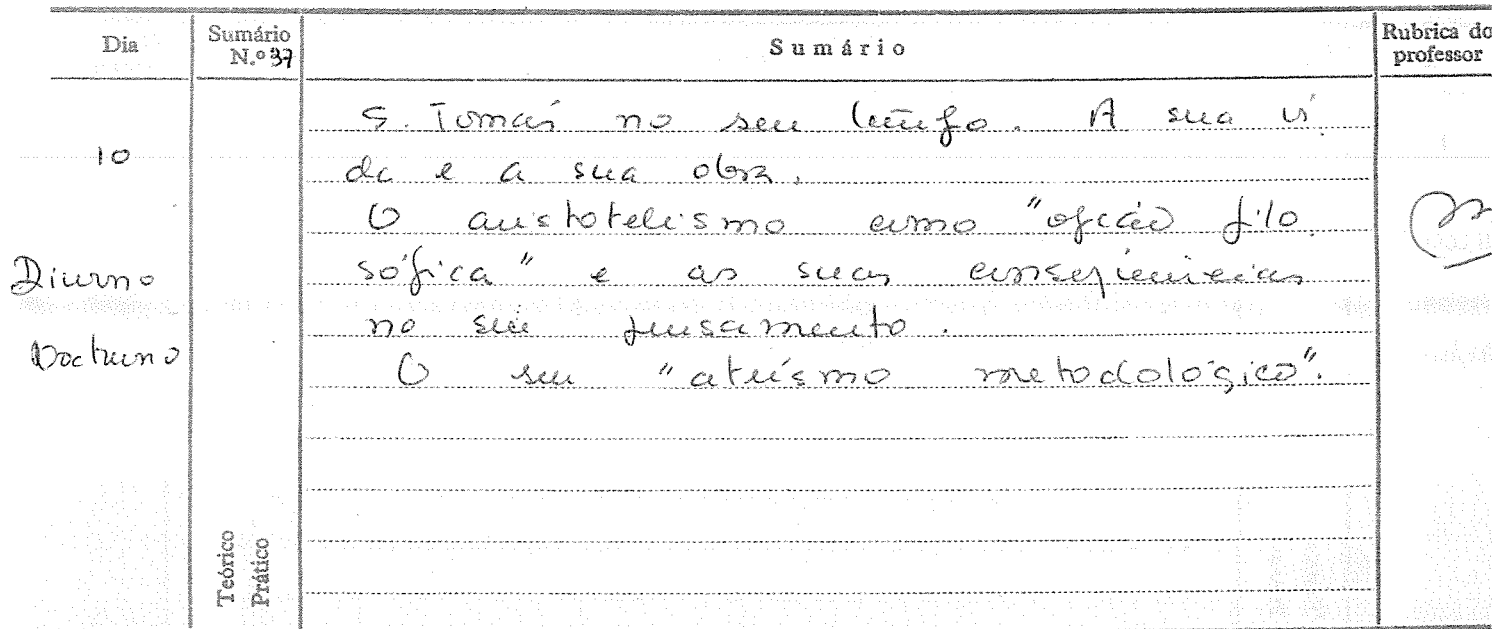 Dia
Sumário
N.º 37
Sumário
Rubrica do
professor
10
Diurno
Nocturno
S. Tomás no seu tempo. A sua vi
da e a sua obra.
O aristotelismo como "opção filo
sófica" e as suas consequências
no seu pensamento.
O seu "ateísmo metodológico".
Teórico
Prático